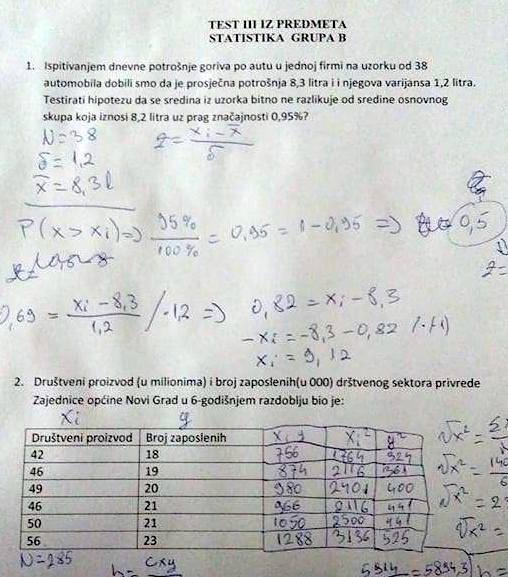 TEST III IZ PREDMETA
STATISTIKA GRUPA B
1. Ispitivanjem dnevne potrošnje goriva po autu u jednoj firmi na uzorku od 38
automobila dobili smo da je prosječna potrošnja 8,3 litra i i njegova varijansa 1,2 litra.
Testirati hipotezu da se sredina iz uzorka bitno ne razlikuje od sredine osnovnog
skupa koja iznosi 8,2 litra uz prag značajnosti 0,95%?
N=38 z = xi - x̄ / δ
δ = 1,2
x̄ = 8,3 l
P(x > xi) => 95% / 100% = 0,95 = 1 - 0,95 => 0,5
z=
0,69 = xi - 8,3 / 1,2 /·1,2 => 0,82 = xi - 8,3
-xi = -8,3 - 0,82 /·(-1)
xi = 9,12
2. Društveni proizvod (u milionima) i broj zaposlenih(u 000) drštvenog sektora privrede
Zajednice općine Novi Grad u 6-godišnjem razdoblju bio je:
xi y
Društveni proizvod Broj zaposlenih xi y xi² y²
42 18 756 1764 324
46 19 874 2116 361
49 20 980 2401 400
46 21 966 2116 441
50 21 1050 2500 441
56 23 1288 3136 525
N=285 Cxy